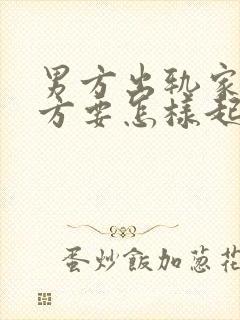 男方出轨家
方要怎样起
蛋炒飯加葱花